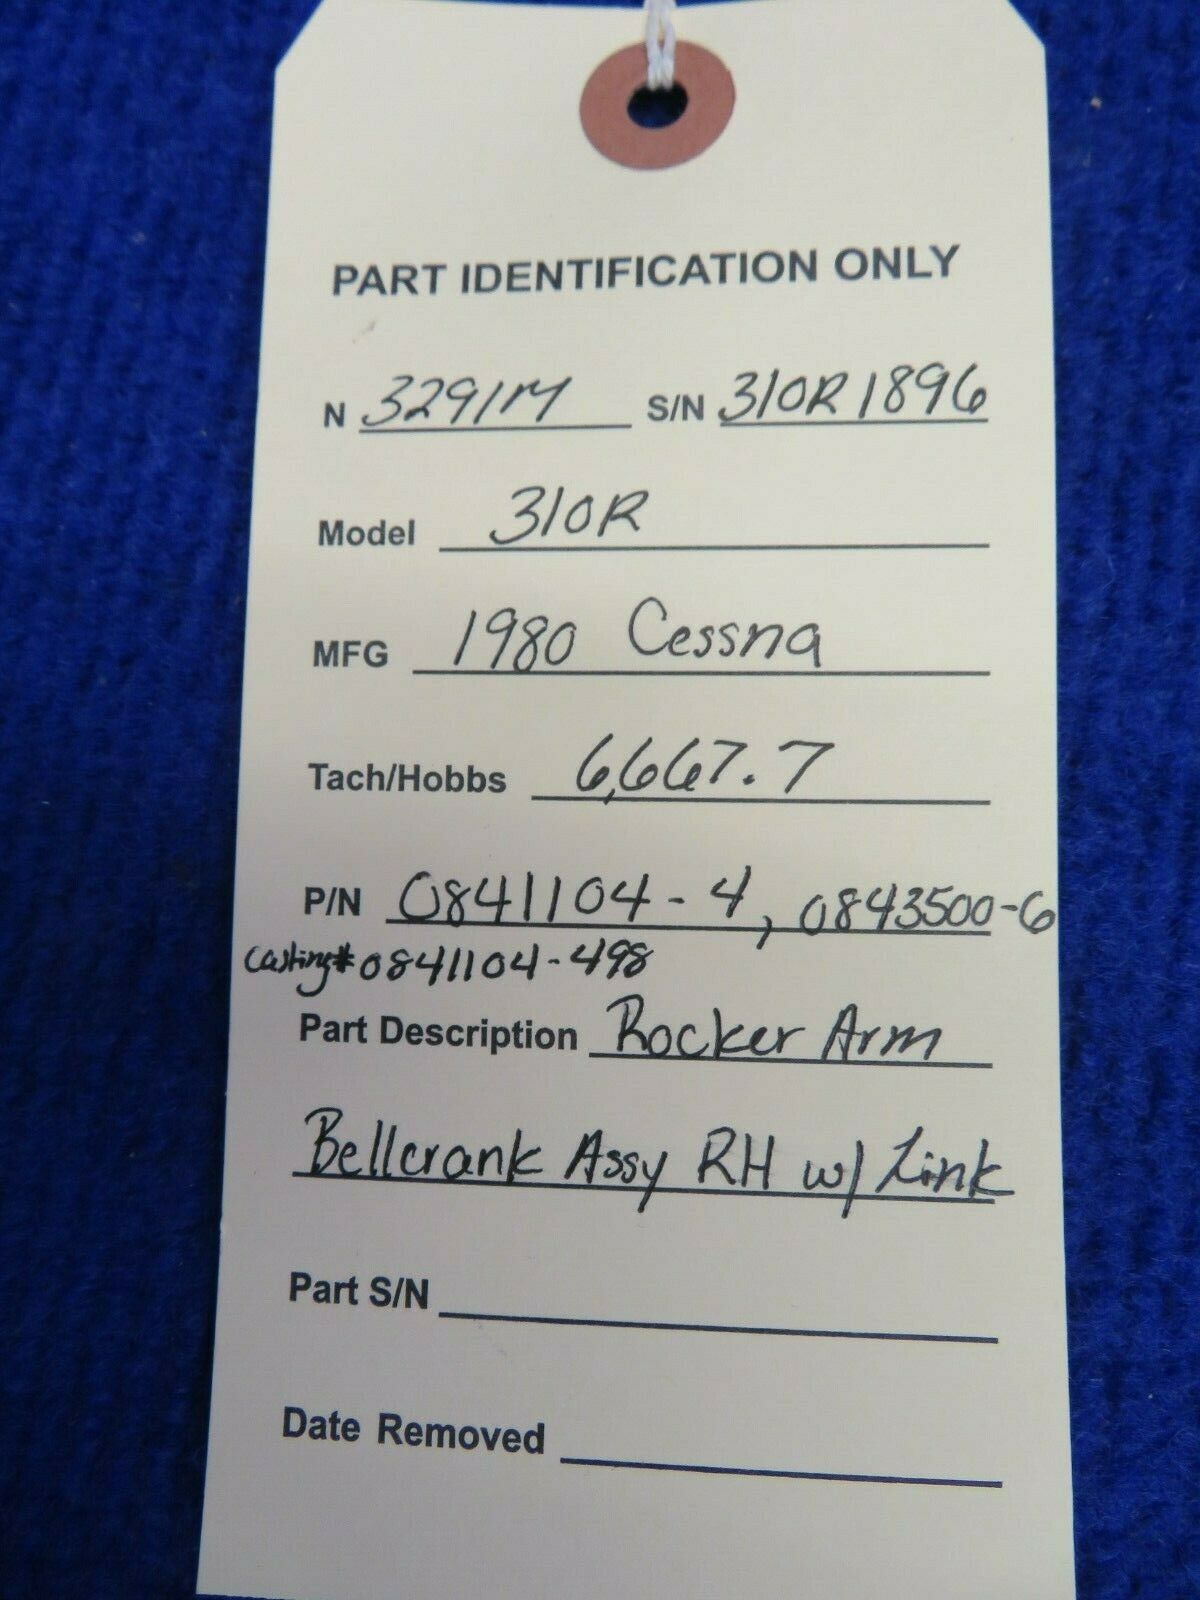 PART IDENTIFICATION ONLY
N 3291M S/N 310R1896
Model 310R
MFG 1980 Cessna
Tach/Hobbs 6,667.7
P/N 0841104-4, 0843500-6
Casting# 0841104-498
Part Description Rocker Arm
Bellcrank Assy RH w/ Link
Part S/N
Date Removed